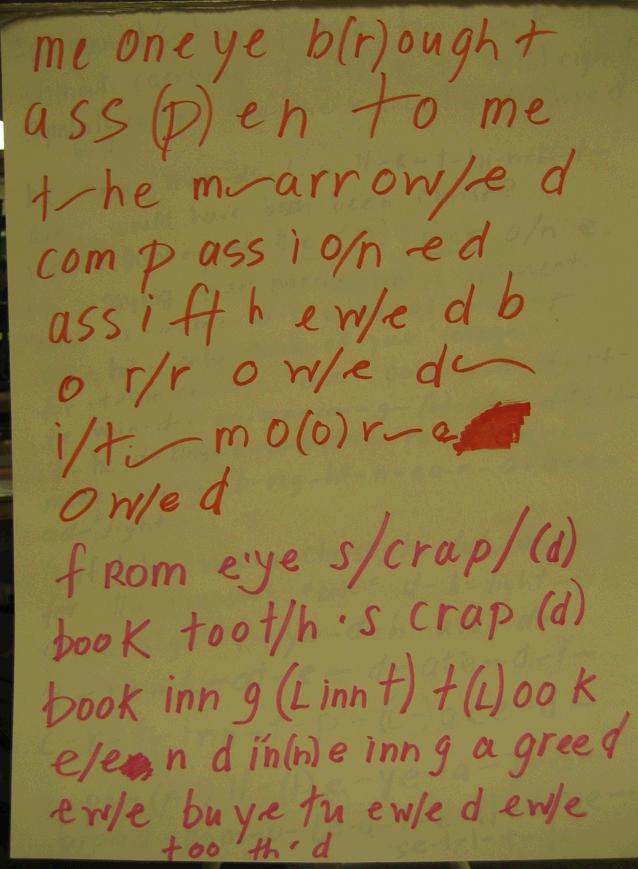 me one ye b(r)ought
ass (p) en to me
t~he m~arrow/e d
comp ass i o/n ed
ass i ft h ew/e d b
o r/r o w/e d~
i/t~m o(o) r~a
ow/e d
f Rom e'ye s/crap/(d)
book toot/h · s crap (d)
book inn g (Linnt) t(L)ook
e/e n d in(n)e inn g a greed
ew/e buye tu ew/e d ew/e
too th·d